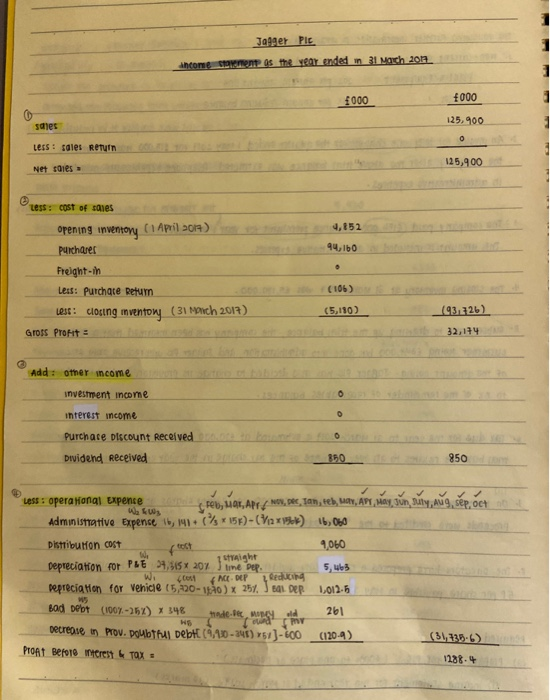 Jagger Plc
Income statement as the year ended in 31 March 2017
£000 £000
① Sales 125,900
Less: sales Return 0
Net sales = 125,900
② Less: cost of sales
Opening inventory (1 April 2017) 4,852
Purchases 94,160
Freight-in 0
Less: Purchase Return (106)
Less: closing inventory (31 March 2017) (5,180) (93,726)
Gross Profit = 32,174
③ Add: other income
Investment income 0
Interest income 0
Purchase Discount Received 0
Dividend Received 850 850
④ Less: operational Expense
Feb, Mar, Apr Nov, Dec, Jan, Feb, Mar, Apr, May, Jun, July, Aug, Sep, Oct
Administrative Expense 16,060
Distribution cost 9,060
W1 cost straight
Depreciation for P&E 29,315 x 20% line Dep. 5,463
W1 cost Acc. Dep Reducing
Depreciation for vehicle (5,720- ) x 25% Bal Dep 1,012.5
W5
Bad Debt (100%-25%) x 348 261
trade-Rec money old
W8 owed
Decrease in Prov. Doubtful Debt x5%]-600 (120.9) (31,735.6)
Profit Before interest & Tax = 1288.4